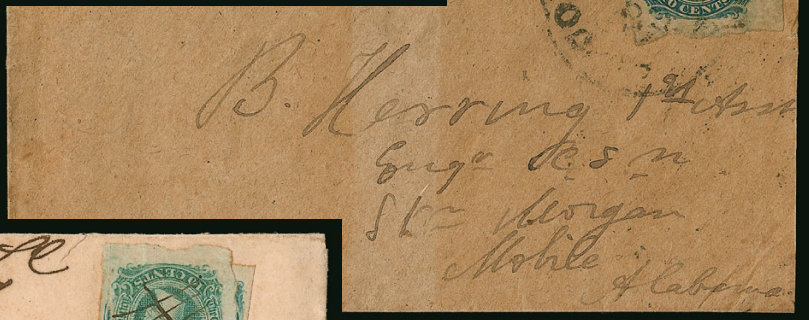 10 CENTS
B. Herring 1st Asst
Engr C. S. N.
Str Morgan
Mobile
Alabama
TEN CENTS